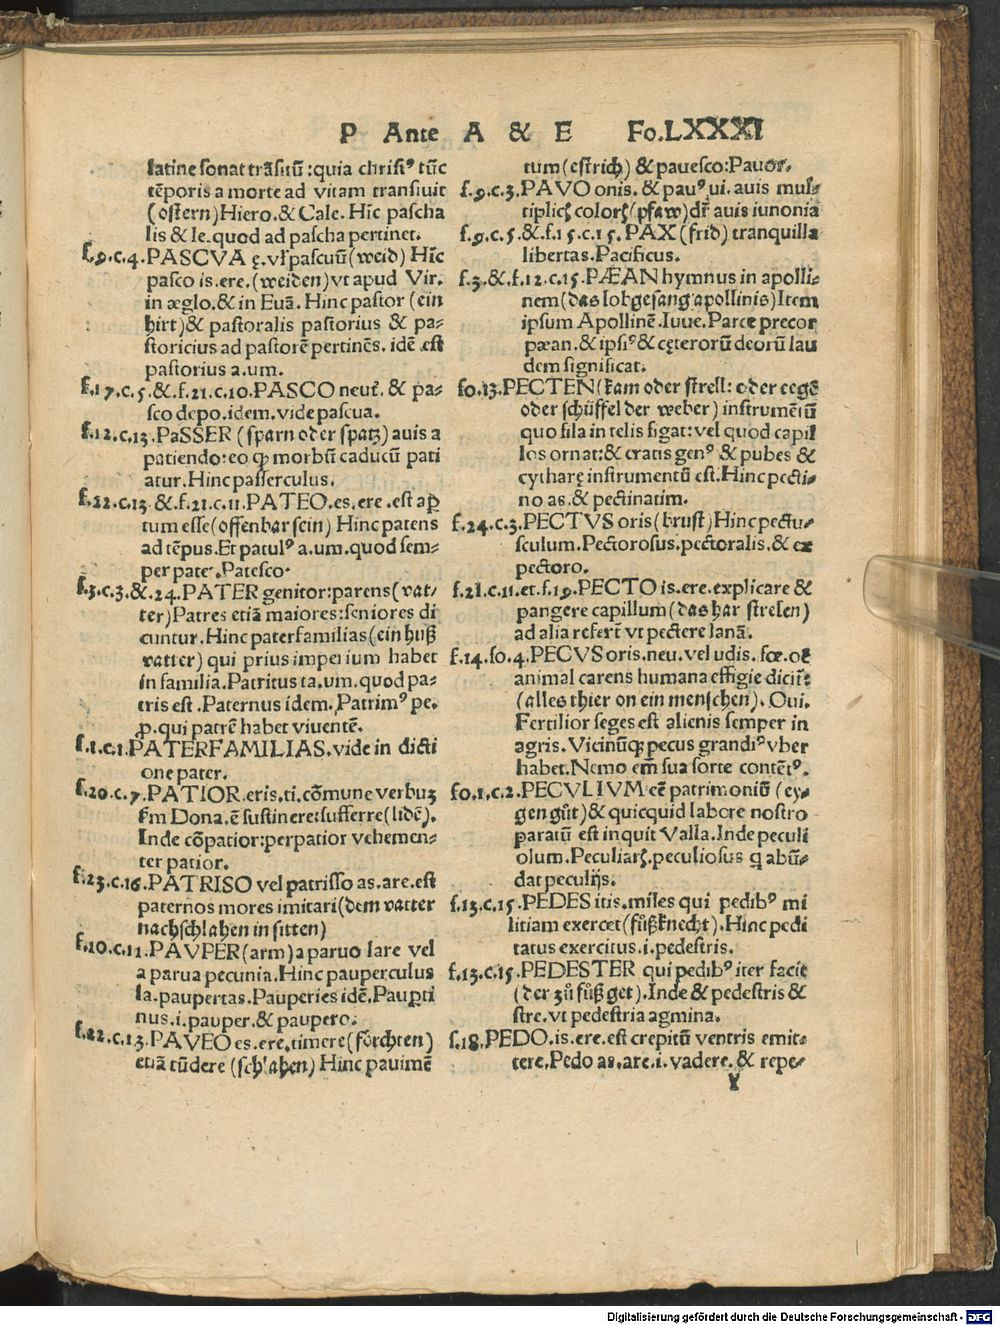 P Ante A & E Fo.LXXXI
latine sonat trãsitũ:quia christꝰ tũc
tẽporis a morte ad vitam transiuit
(ostern)Hiero.& Cale. Hĩc pascha
lis & le.quod ad pascha pertinet.
f.9.c.4.PASCVA ę.vł pascuũ(weid) Hĩc
pasco is.ere.(weiden)vt apud Vir.
in æglo.& in Euã. Hinc pastor (ein
hirt)& pastoralis pastorius & pa⸗
storicius ad pastorẽ pertinẽs. idẽ est
pastorius a.um.
f.17.c.5.&.f.21.c.10.PASCO neut̃. & pa⸗
sco depo.idem.vide pascua.
f.12.c.13.PaSSER (sparn oder spatz) auis a
patiendo:eo ꝙ morbũ caducũ pati
atur.Hinc passerculus.
f.22.c.13.&.f.21.c.11.PATEO.es.ere.est ap̃
tum esse(offenbar sein) Hinc patens
ad tẽpus.Et patulꝰ a.um.quod sem⸗
per pate᷑.Patesco.
f.3.c.3.&.24.PATER genitor:parens(vat⸗
ter)Patres etiã maiores:seniores di
cuntur.Hinc paterfamilias(ein huß
vatter) qui prius imperium habet
in familia.Patritus ta.um.quod pa⸗
tris est.Paternus idem.Patrimꝰ pe.
ꝓ.qui patrẽ habet viuentẽ.
f.1.c.1.PATERFAMILIAS.vide in dicti
one pater.
f.20.c.7.PATIOR.eris.ti.cõmune verbuʒ
fm Dona.ẽ sustinere:sufferre(lidẽ).
Inde cõpatior:perpatior vehemen⸗
ter patior.
f.23.c.16.PATRISO vel patrisso as.are.est
paternos mores imitari(dem vatter
nachschlahen in sitten)
f.10.c.11.PAVPER(arm)a paruo lare vel
a parua pecunia.Hinc pauperculus
la.paupertas.Pauperies idẽ.Paupti
nus.i.pauper.& paupero.
f.22.c.13.PAVEO es.ere.timere(förchten)
etiã tũdere (schlahen) Hinc pauimẽ
tum(estrich) & pauesco:Pauor.
f.9.c.3.PAVO onis. & pauꝰ ui. auis mul⸗
tiplicꝭ colorꝭ(pfaw)dr̃ auis iunonia
f.9.c.5.&.f.15.c.15.PAX(frid) tranquilla
libertas.Pacificus.
f.3.&.f.12.c.15.PÆAN hymnus in apolli⸗
nem(das lobgesang apollinis)Item
ipsum Apollinẽ.Iuue.Parce precor
pæan.& ipsiꝰ & cęterorũ deorũ lau
dem significat.
fo.13.PECTEN(kam oder strell: oder eegẽ
oder schüffel der weber) instrumẽtũ
quo fila in telis figat:vel quod capil
los ornat:& cratis genꝰ & pubes &
cytharę instrumentũ est.Hinc pecti⸗
no as.& pectinatim.
f.24.c.3.PECTVS oris(brust)Hinc pectu⸗
sculum.Pectorosus.pectoralis.& ex
pectoro.
f.21.c.11.et.f.19.PECTO is.ere.explicare &
pangere capillum(das har strelen)
ad alia refert᷑ vt pectere lanã.
f.14.fo.4.PECVS oris.neu.vel udis. fœ.oẽ
animal carens humana effigie dicit᷑:
(alles thier on ein menschen). Oui.
Fertilior seges est alienis semper in
agris.Vicinũꝙ pecus grandiꝰ vber
habet.Nemo em̃ sua sorte contẽtꝰ.
fo.1.c.2.PECVLIVM eẽ patrimoniũ (ey⸗
gen gůt)& quicquid labore nostro
paratũ est inquit Valla.Inde peculi
olum.Peculiarꝭ.peculiosus q̃ abũ⸗
dat peculijs.
f.13.c.15.PEDES itis.miles qui pedibꝰ mi
litiam exercet(fůßknecht).Hinc pedi
tatus exercitus.i.pedestris.
f.13.c.15.PEDESTER qui pedibꝰ iter facit
(der zů fůß get).Inde & pedestris &
stre.vt pedestria agmina.
f.18.PEDO.is.ere.est crepitũ ventris emit⸗
tere.Pedo as.are.i.vadere.& repe⸗
Digitalisierung gefördert durch die Deutsche Forschungsgemeinschaft - DFG